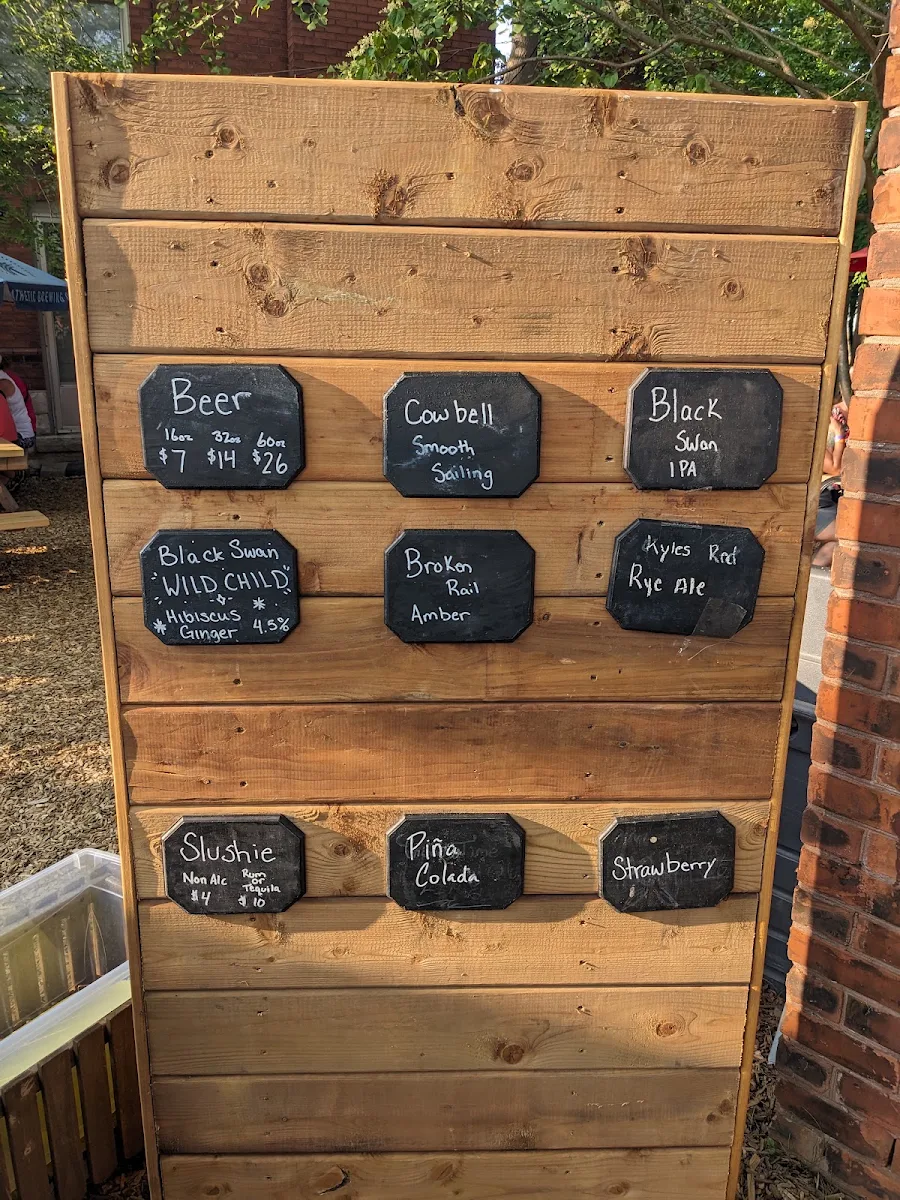 THETIC BREWING
Beer
16oz 32oz 60oz
$7 $14 $26
Cowbell
Smooth
Sailing
Black
Swan
IPA
Black Swan
WILD CHILD
Hibiscus
Ginger 4.5%
Broken
Rail
Amber
Kyles Red
Rye Ale
Slushie
Non Alc
$4
Rum
or
Tequila
$10
Piña
Colada
Strawberry